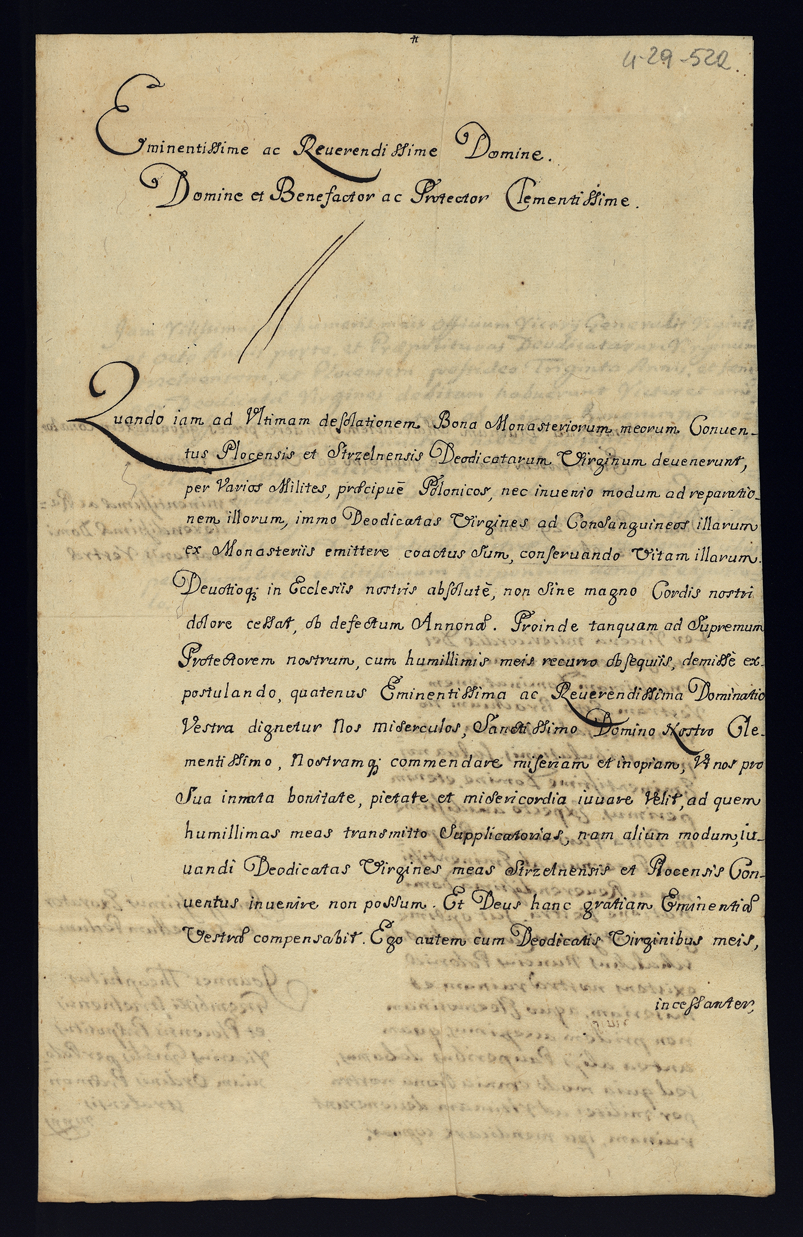 4-29-522.
Eminentissime ac Reuerendissime Domine.
Domine et Benefactor ac Protector Clementissime.
Quando iam ad Vltimam desolationem Bona Monasteriorum meorum Conuen-
tus Plocensis et Strzelnensis Deodicatarum Virginum deuenerunt,
per Varios Milites, præcipuè Polonicos, nec inuenio modum ad reparatio-
nem illorum, immo Deodicatas Virgines ad Consanguineos illarum
ex Monasteriis emittere coactus sum, conseruando Vitam illarum.
Deuotioq; in Ecclesiis nostris absolutè, non sine magno Cordis nostri
dolore cessat, ob defectum Annonæ. Proinde tanquam ad Supremum
Protectorem nostrum, cum humillimis meis recurro obsequiis, demissè ex-
postulando, quatenus Eminentissima ac Reuerendissima Dominatio
Vestra dignetur Nos miserculos, Sanctissimo Domino Nostro Cle-
mentissimo, Nostramq; commendare miseriam et inopiam, Vt nos pro
Sua innata bonitate, pietate et misericordia iuuare Velit, ad quem
humillimas meas transmitto Supplicatorias, nam alium modum, iu-
uandi Deodicatas Virgines meas Strzelnensis et Plocensis Con-
uentus inuenire non possum. Et Deus hanc gratiam Eminentiæ
Vestræ compensabit. Ego autem cum Deodicatis Virginibus meis,
incessanter,